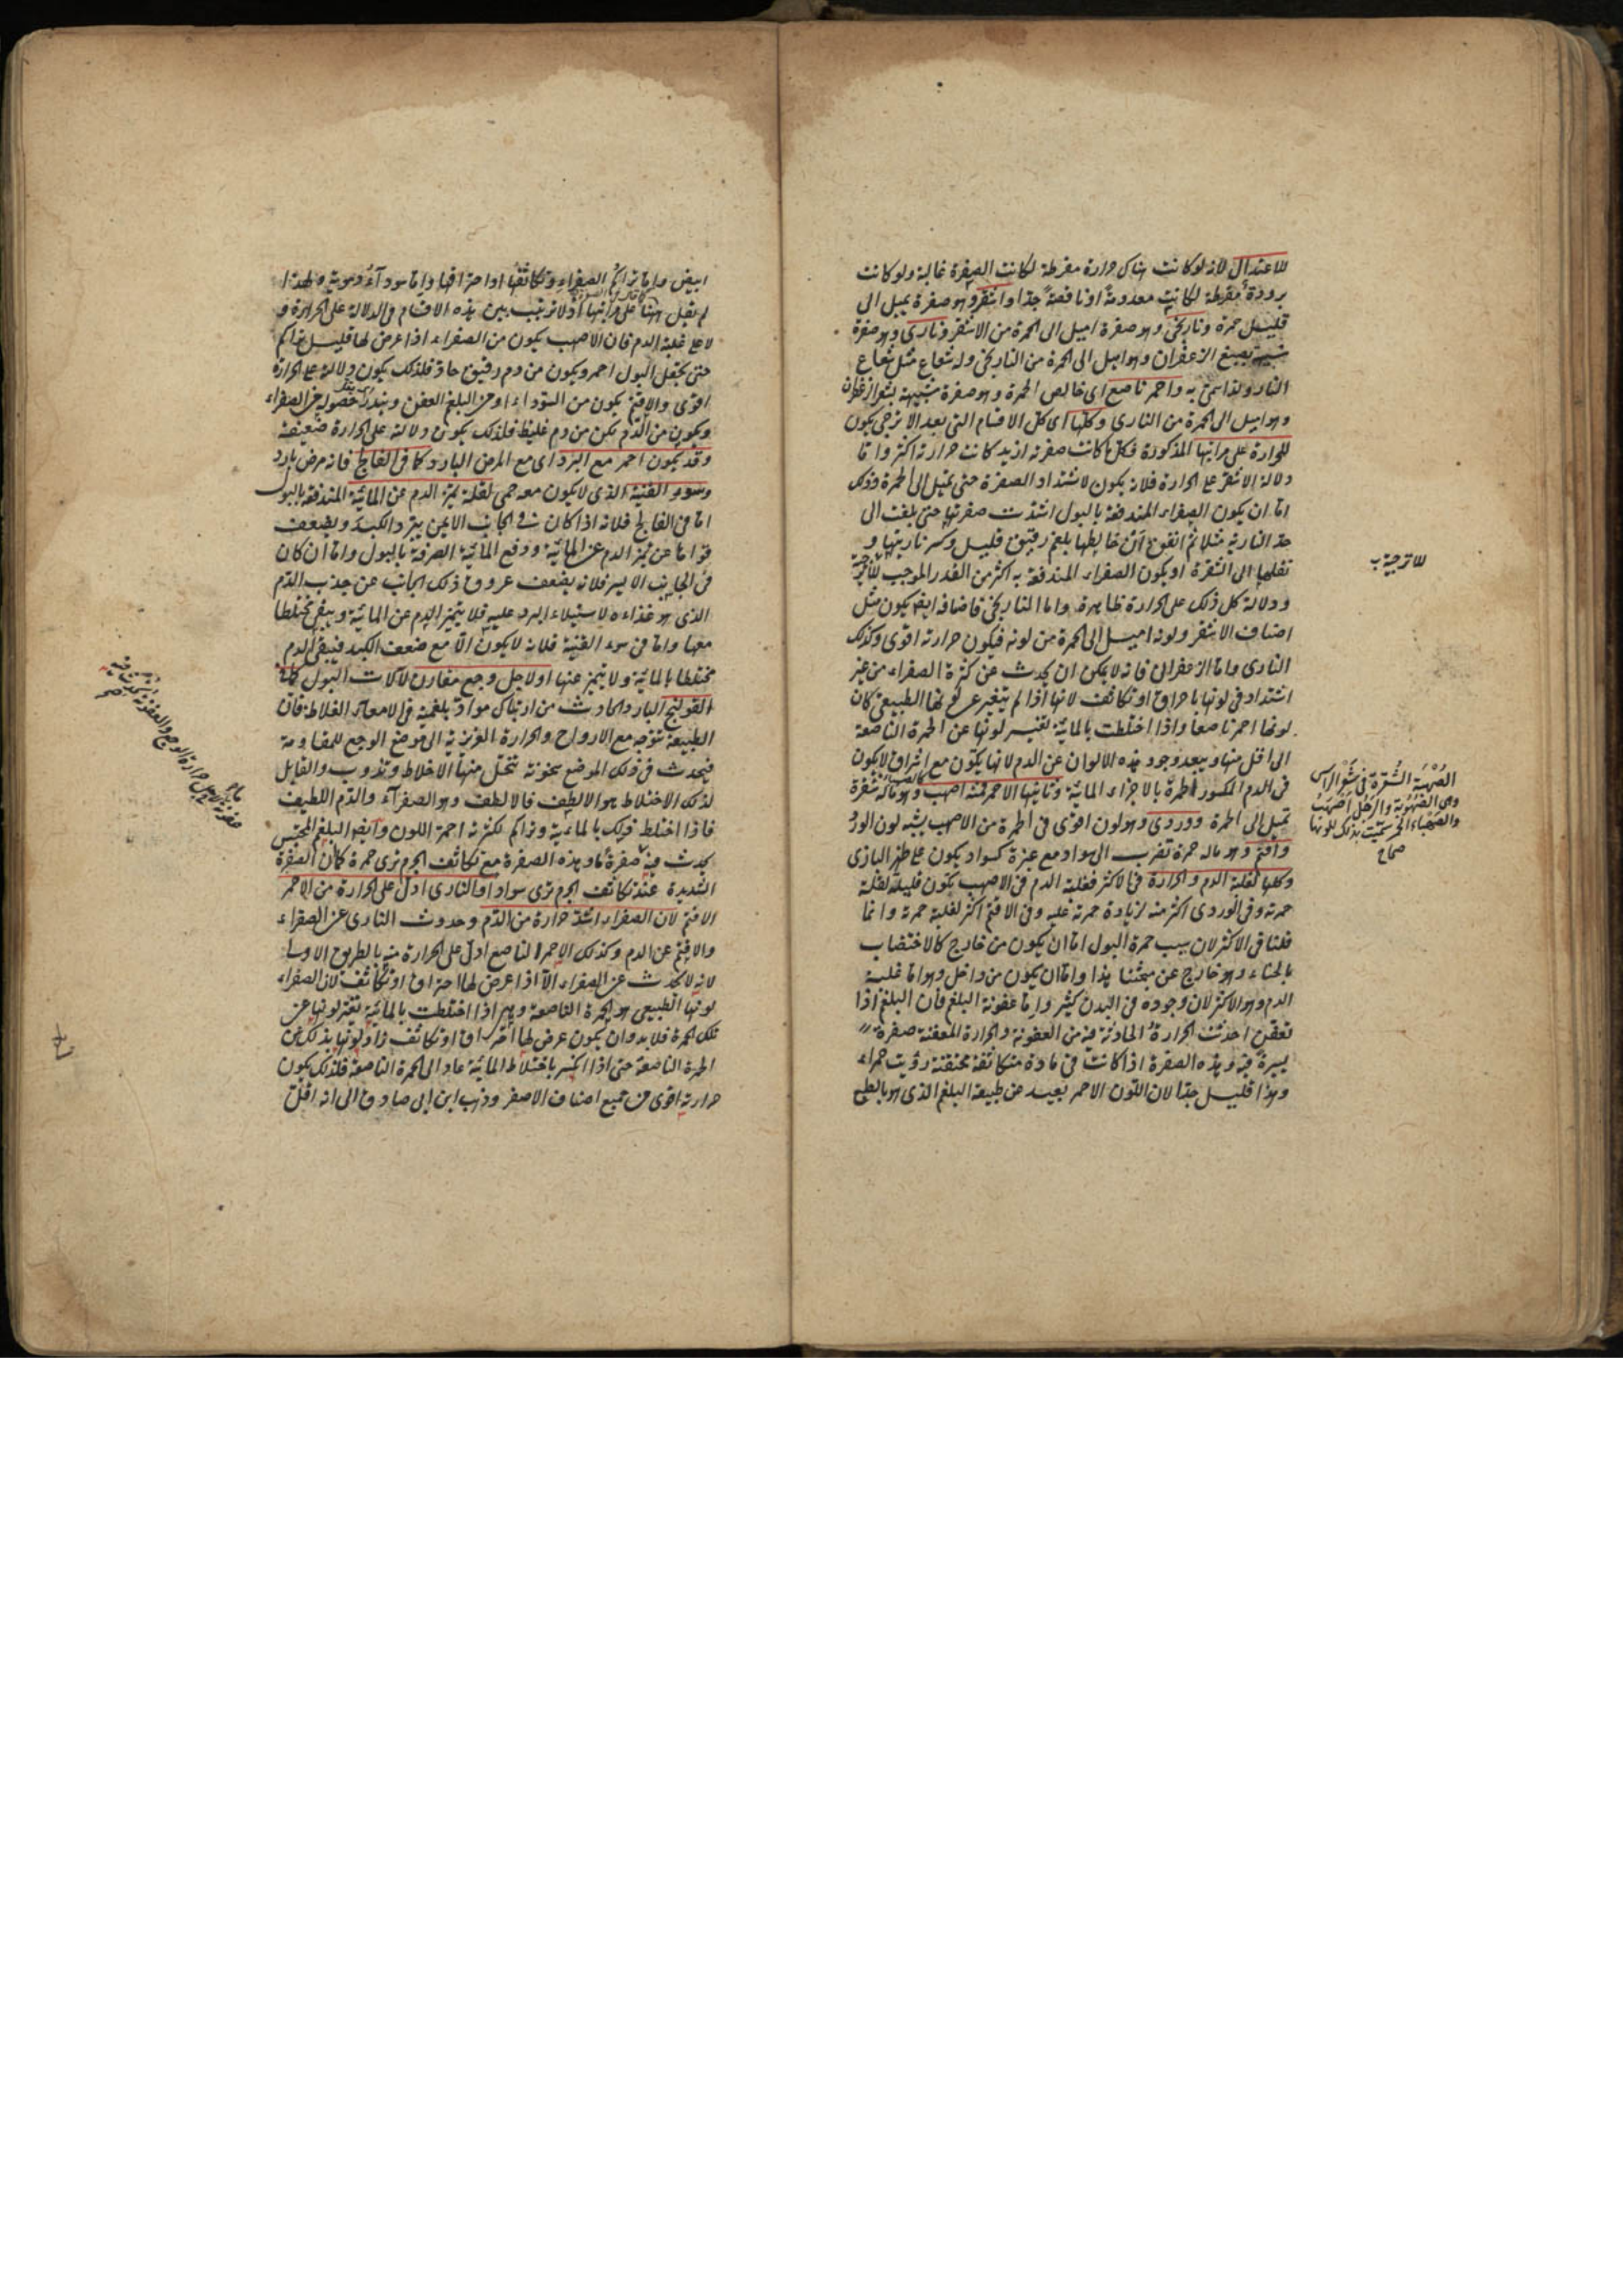 للاعتدال لانه لو كانت هناك حرارة مفرطة لكانت الصفرة غالبة ولو كانت
برودة مفرطة لكانت معدومة او ناقصة جدا واشقر وهو صفرة يميل الى
قليل حمرة ونارنجى وهو صفرة اميل الى الحمرة من الاشقر ونارى وهو صفرة
شبيهة بصبغ الزعفران وهو اميل الى الحمرة من النارنجى وله شعاع مثل شعاع
النار ولذا سمى به واحمر ناصع اى خالص الحمرة وهو صفرة شبيهة بشعر الزعفران
وهو اميل الى الحمرة من النارى وكلها اى كل الاقسام التى بعد الاترجى يكون
للحرارة على مراتبها المذكورة فكل ما كانت صفرته ازيد كانت حرارته اكثر واما
دلالة الاشقر على الحرارة فلانه يكون لاشتداد الصفرة حتى تميل الى الحمرة وذلك
اما ان يكون الصفراء المندفعة بالبول اشتدت صفرتها حتى بلغت الى
حد النارية مثلا ثم اتفق ان خالطها بلغم رقيق قليل وكسر ناريتها و
نقلها الى الشقرة او يكون الصفراء المندفعة به اكثر من القدر الموجب للاترجية
ودلالة كل ذلك على الحرارة ظاهرة واما النارنجى فاصنافه ايضا يكون مثل
اصناف الاشقر ولونه اميل الى الحمرة من لونه فيكون حرارته اقوى وكذلك
النارى واما الزعفرانى فانه لا يمكن ان يحدث عن كثرة الصفراء من غير
اشتداد فى لونها باحراق او تكاثف لانها اذا لم يتغير عن لونها الطبيعى كان
لونها احمر ناصعا واذا اختلطت بالمائية تغير لونها عن الحمرة الناصعة
الى اقل منها ويبعد وجود هذه الالوان عن الدم لانها يكون مع اشراق لا يكون
فى الدم المكسور الحمرة بالاجزاء المائية وثانيها الاحمر فمنه اصهب وهو ماله شقرة
تميل الى الحمرة ووردى وهو لون اقوى فى الحمرة من الاصهب يشبه لون الورد
واقتم وهو ماله حمرة تضرب الى سواد مع غبرة كسواد يكون على ظهر البازى
وكلها لغلبة الدم والحرارة فى الاكثر فغلبة الدم فى الاصهب يكون قليلة لقلة
حمرته وفى الوردى اكثر منه لزيادة حمرته عليه وفى الاقتم اكثر لغلبة حمرته وانما
قلنا فى الاكثر لان سبب حمرة البول اما ان يكون من خارج كالاختضاب
بالحناء وهو خارج عن مبحثنا هذا واما ان يكون من داخل وهو اما غلبة
الدم وهو الاكثر لان وجوده فى البدن كثير واما عفونة البلغم فان البلغم اذا
تعفن احدثت الحرارة الحادثة فيه من العفونة والحرارة المعفنة صفرة
يسيرة فيه وهذه الصفرة اذا كانت فى مادة متكاثفة محتقنة رؤيت حمراء
وهذا قليل جدا لان اللون الاحمر بعيد عن طبيعة البلغم الذى هو بالطبع
للاترجية
الصُهْبَة الشُقرة فى شعر الرأس
وهى الصُهُوبة والرجل اصهب
والصهباء الخمر سميت بذلك للونها
صحاح
ابيض واما تراكم الصفراء وتكاثفها او احتراقها واما سوداء دموية ولهذا
لم نقل ههنا على مراتبها اذ لا ترتيب بين هذه الاقسام فى الدلالة على الحرارة و
لا على غلبة الدم فان الاصهب يكون من الصفراء اذا عرض لها قليل تراكم
حتى يجعل البول احمر ويكون من دم رقيق حاد فلذلك يكون دلالته على الحرارة
اقوى والاقتم يكون من السوداء او من البلغم العفن ويندر حصوله من الصفراء
ويكون من الدم لكن من دم غليظ فلذلك يكون دلالته على الحرارة ضعيفة
وقد يكون احمر مع البرد اى مع المرض البارد كما فى الفالج فانه مرض بارد
وسوء القنية الذى لا يكون معه حمى لقلة تميز الدم عن المائية المندفعة بالبول
اما فى الفالج فلانه اذا كان فى الجانب الايمن يبرد الكبد ويضعف
قواها عن تميز الدم عن المائية ودفع المائية الصرفة بالبول واما ان كان
فى الجانب الايسر فلانه يضعف عروق ذلك الجانب عن جذب الدم
الذى هو غذاءه لاستيلاء البرد عليه فلا يتميز الدم عن المائية ويبقى مختلطا
معها واما فى سوء القنية فلانه لا يكون الا مع ضعف الكبد فيبقى الدم
مختلطا بالمائية ولا يتميز عنها او لاجل وجع مقارن لآلات البول كما فى
القولنج البارد الحادث من ارتباك مواد بلغمية فى الامعاء الغلاظ فان
الطبيعة تتوجه مع الارواح والحرارة الغريزية الى موضع الوجع للمقاومة
فيحدث فى ذلك الموضع سخونة تتحلل منها الاخلاط وتذوب والقابل
لذلك الاختلاط هو الالطف فالالطف وهو الصفراء والدم اللطيف
فاذا اختلط ذلك بالمائية وتراكم لكثرته احمر اللون وايضا البلغم المحتبس
يحدث فيه صفرة ما وهذه الصفرة مع تكاثف الجرم ترى حمرة كما ان الصفرة
الشديدة عند تكاثف الجرم ترى سوادا والنارى ادل على الحرارة من الاحمر
الاقتم لان الصفراء اشد حرارة من الدم وحدوث النارى عن الصفراء
والاقتم عن الدم وكذلك الاحمر الناصع ادل على الحرارة منه بالطريق الاولى
لانه لا يحدث عن الصفراء الا اذا عرض لها احتراق او تكاثف لان الصفراء
لونها الطبيعى هو الحمرة الناصعة وهى اذا اختلطت بالمائية تغير لونها عن
تلك الحمرة فلا بد وان يكون عرض لها احتراق او تكاثف زاد لونها بذلك عن
الحمرة الناصعة حتى اذا انكسر باختلاط المائية عاد الى الحمرة الناصعة فلذلك يكون
حرارته اقوى من جميع اصناف الاصفر وذهب ابن ابى صادق الى انه اقل